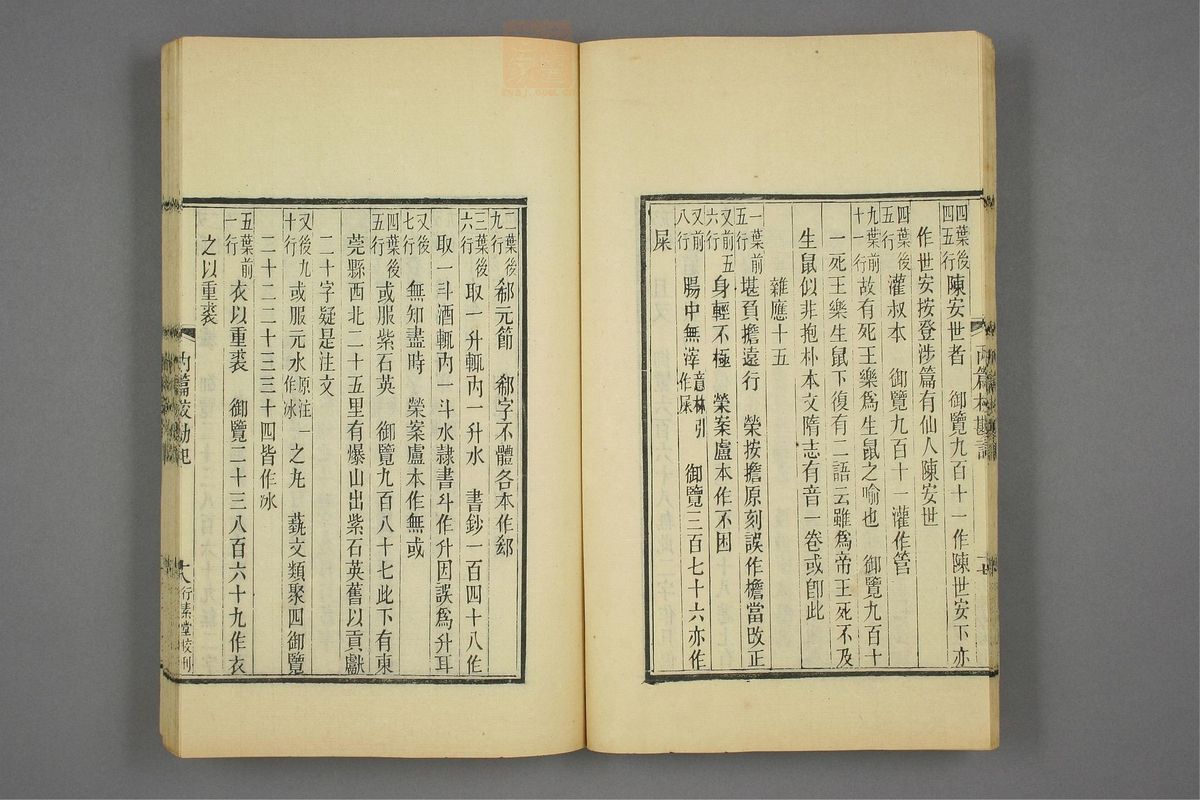 四葉後四五行陳安世者　御覽九百十一作陳世安下亦
作世安按登涉篇有仙人陳安世
四葉後五行灌叔本　御覽九百十一灌作管
九葉前十一行故有死王樂爲生鼠之喻也　御覽九百十
一死王樂生鼠下復有二語云雖爲帝王死不及
生鼠似非抱朴本文隋志有音一卷或卽此
雜應十五
一葉前五行堪負擔遠行　榮按擔原刻誤作檐當改正
又前五六行身輕不極　榮案盧本作不困
又前八行腸中無滓意林引作屎　御覽三百七十六亦作
屎
內篇校勘記
二葉後九行郗元節　郗字不體各本作郄
三葉後六行取一升輒內一升水　書鈔一百四十八作
取一斗酒輒內一斗水隸書斗作升因誤爲升耳
又後七行無知盡時　榮案盧本作無或
四葉後五行或服紫石英　御覽九百八十七此下有東
莞縣西北二十五里有爆山出紫石英舊以貢獻
二十字疑是注文
又後九十行或服元冰原注一作冰之丸　蓺文類聚四御覽
二十二二十三三十四皆作冰
五葉前一行衣以重裘　御覽二十三八百六十九作衣
之以重裘
內篇校勘記
十八
行素堂校刊